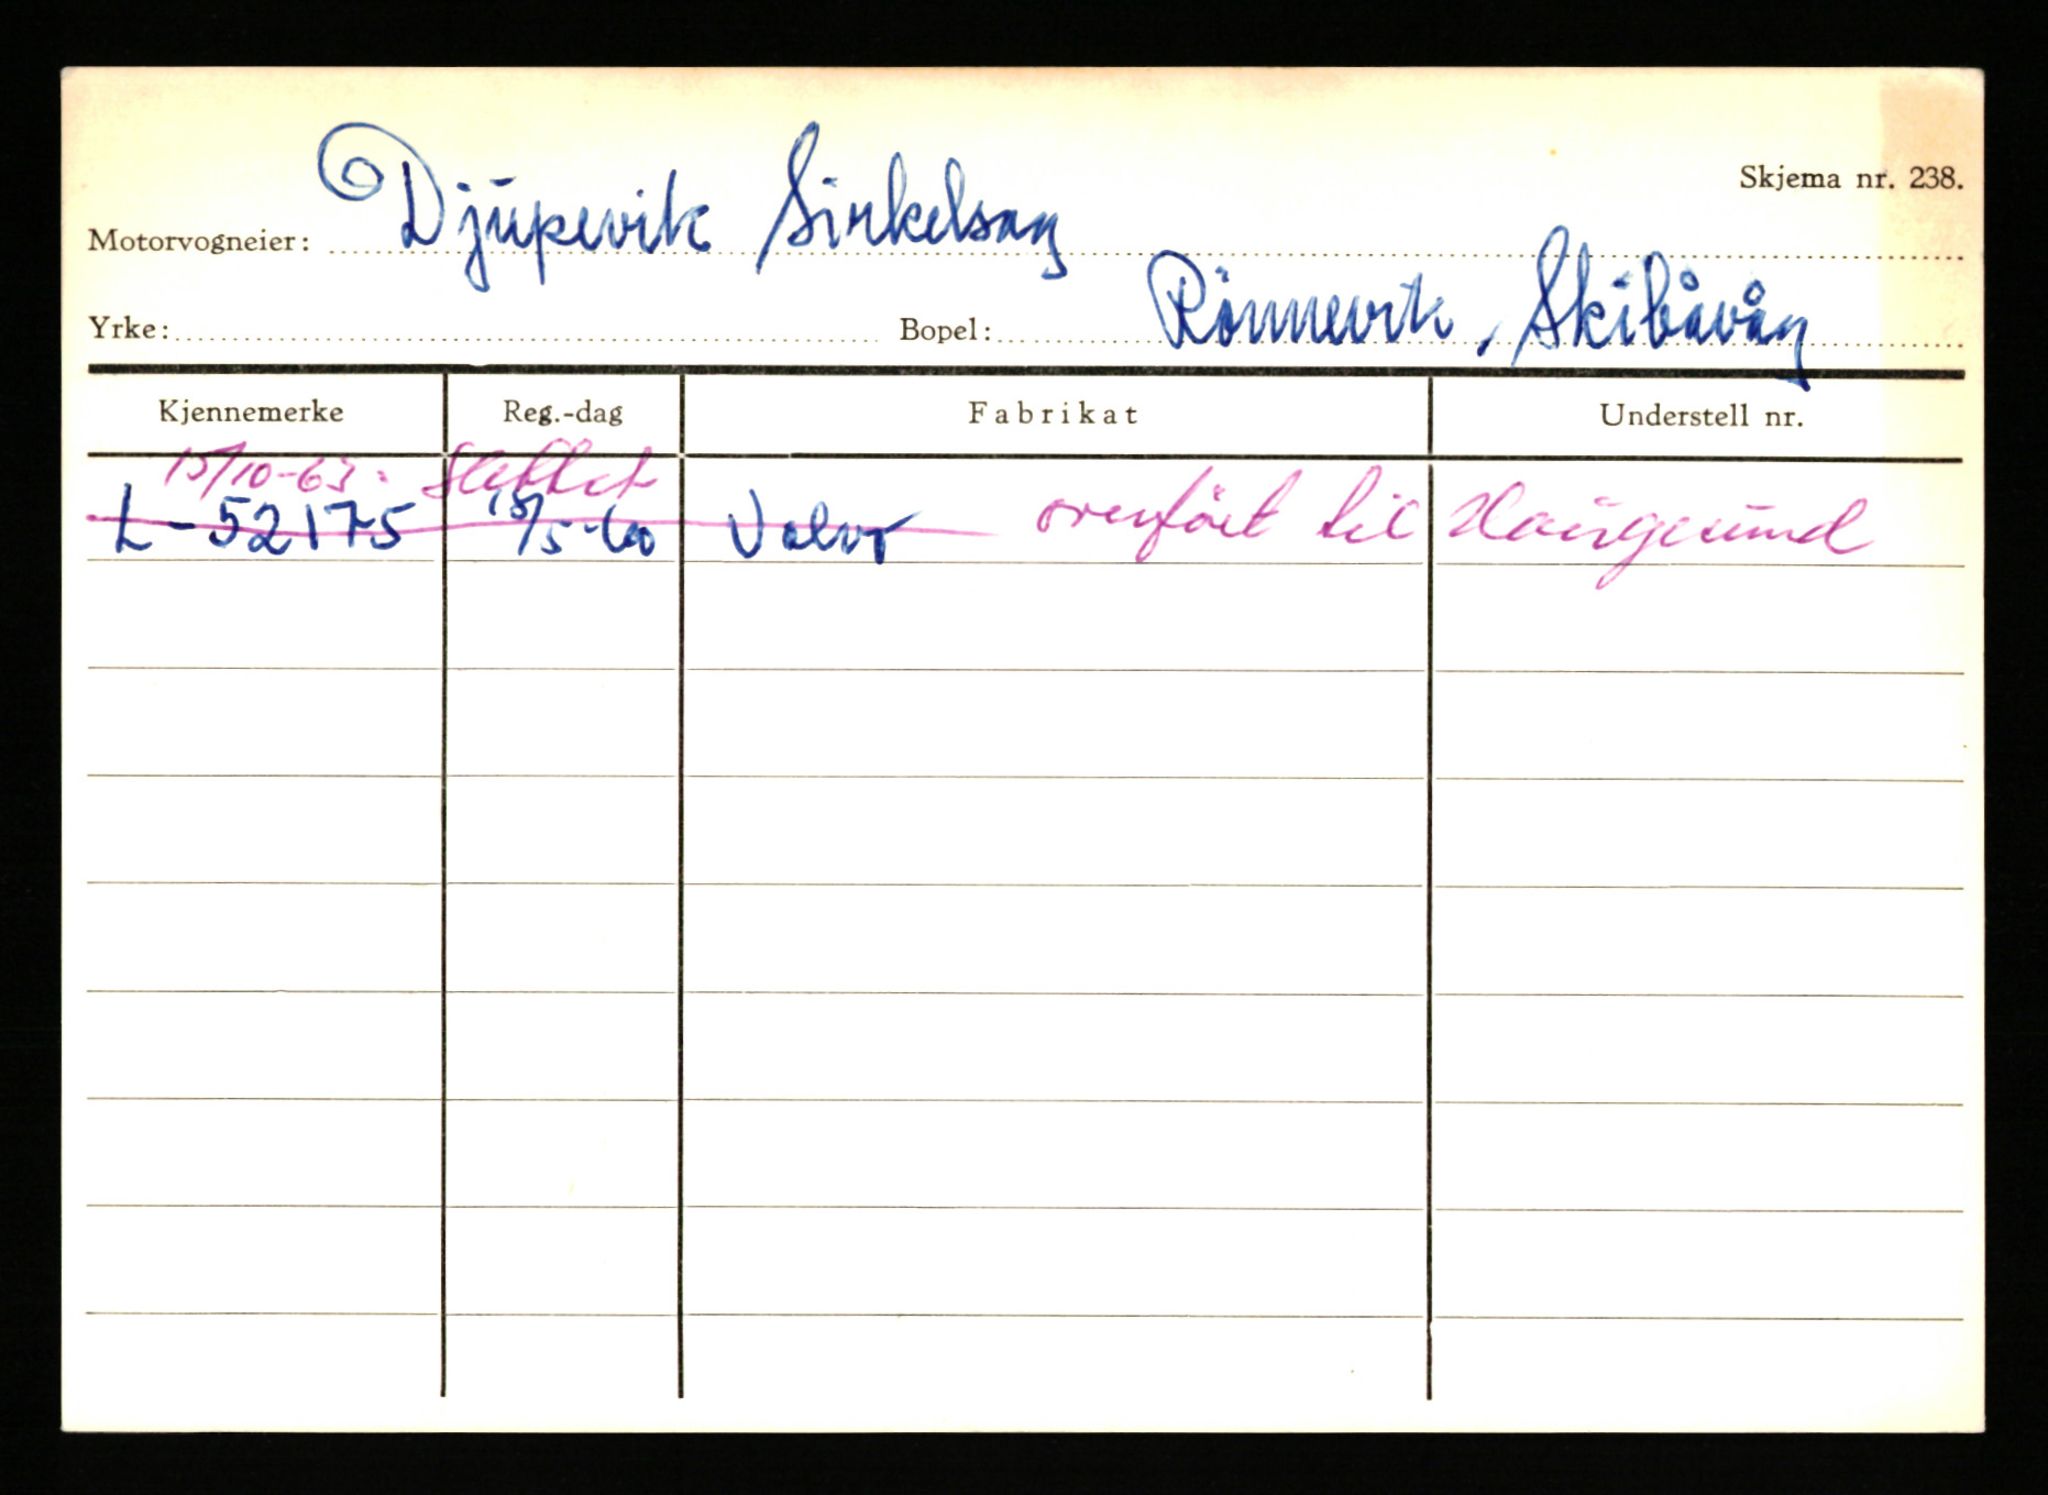 Skjema nr. 238.
Motorvogneier: Djupevik Sirkelsag
Yrke: Bopel: Rönnevik, Skibåvåg
Kjennemerke Reg.-dag Fabrikat Understell nr.
15/10-63: Slettet
L-52175 18/5-60 Volvo overført til Haugesund